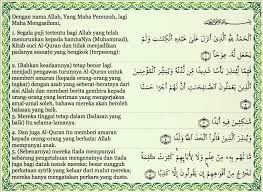 Dengan nama Allah, Yang Maha Pemurah, lagi
Maha Mengasihani,
1. Segala puji tertentu bagi Allah yang telah
menurunkan kepada hambaNya (Muhammad),
Kitab suci Al-Quran dan tidak menjadikan
padanya sesuatu yang bengkok (terpesong):
2. (Bahkan keadaannya) tetap benar lagi
menjadi pengawas
amaran
yang seberat-beratnya dari
sisi Allah, dan memberi berita gembira kepada
orang-orang yang beriman yang mengerjakan
amal-amal soleh, bahawa mereka akan beroleh
balasan yang baik.
3. Mereka tinggal tetap dalam (balasan yang
baik) itu selama-lamanya.
4. Dan juga Al-Quran itu memberi amaran
kepada orang-orang yang berkata: Allah
mempunyai anak.
5. (Sebenarnya) mereka tiada mempunyai
sebarang pengetahuan mengenainya, dan tiada
juga bagi datuk nenek mereka; besar sungguh
perkataan syirik yang keluar dari mulut mereka;
mereka hanya mengatakan perkara yang dusta.
الْحَمْدُ لِلَّهِ الَّذِي أَنْزَلَ عَلَىٰ عَبْدِهِ الْكِتَابَ وَلَمْ
يَجْعَلْ لَهُ عِوَجًا
قَيِّمًا لِيُنْذِرَ بَأْسًا شَدِيدًا مِنْ لَدُنْهُ وَيُبَشِّرَ الْمُؤْمِنِينَ
الَّذِينَ يَعْمَلُونَ الصَّالِحَاتِ أَنَّ لَهُمْ أَجْرًا حَسَنًا
مَاكِثِينَ فِيهِ أَبَدًا
وَيُنْذِرَ الَّذِينَ قَالُوا اتَّخَذَ اللَّهُ وَلَدًا
مَا لَهُمْ بِهِ مِنْ عِلْمٍ وَلَا لِآبَائِهِمْ كَبُرَتْ كَلِمَةً
تَخْرُجُ مِنْ أَفْوَاهِهِمْ إِنْ يَقُولُونَ إِلَّا كَذِبًا